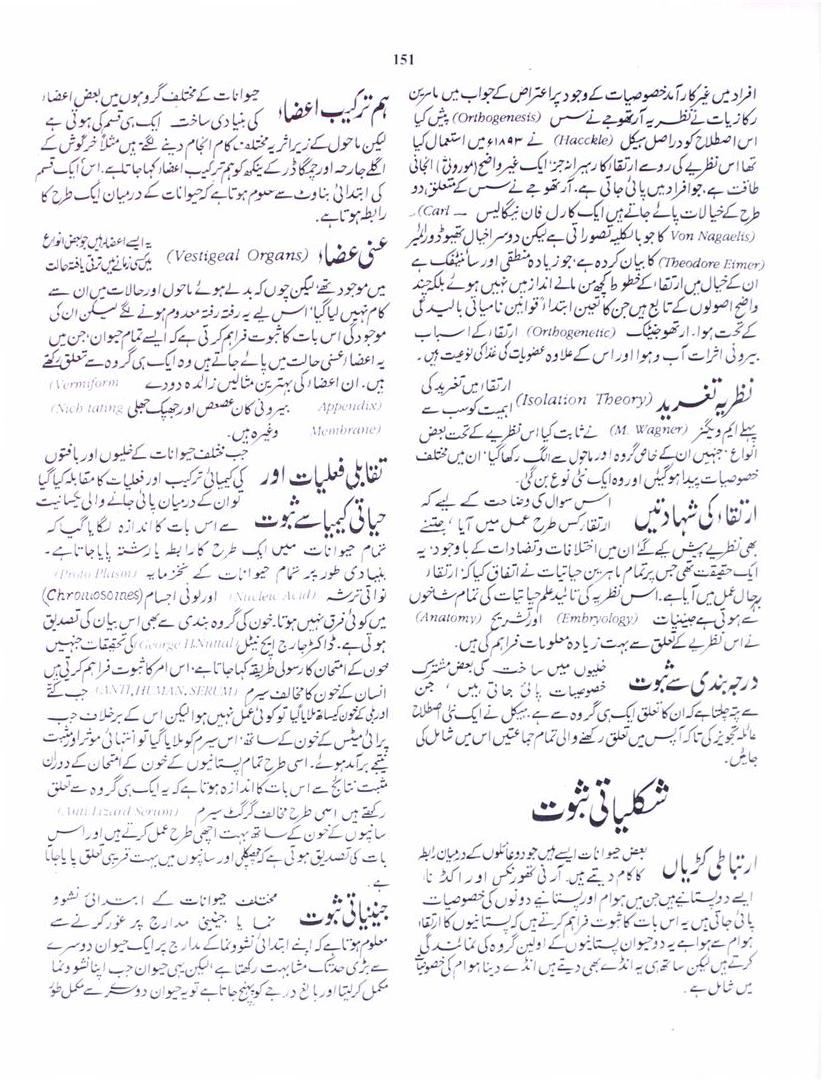 151
افراد میں غیر کارآمد خصوصیات کے وجود پر اعتراض کے جواب میں ماہرین
رکازیات نے نظریہ آرتھوجے نے سس (Orthogenesis) پیش کیا
اس اصطلاح کو دراصل ہیکل (Hacckle) نے ۱۸۹۳ء میں استعمال کیا
تھا اس نظریے کی رو سے ارتقا کا رہبر انہ جز ایک غیر واضح (موروثی) انجانی
طاقت ہے، جو افراد میں پائی جاتی ہے۔ آرتھوجے نے سس کے متعلق دو
طرح کے خیالات پائے جاتے ہیں ایک کارل فان نیگالیس (Carl —
Von Nagaelis) کا جو بالکلیہ تصوراتی ہے لیکن دوسرا خیال تھیوڈور ائمیر
(Theodore Eimer) کا بیان کردہ ہے، جو زیادہ منطقی اور سائنٹفک ہے
ان کے خیال میں ارتقا کے خطوط کچھ من مانے انداز میں نہیں ہوئے بلکہ چند
واضح اصولوں کے تابع ہیں جن کا تعین ابتدا قوانین نامیاتی بالیدگی
کے تحت ہوا۔ ارتھوجنیٹک (Orthogenetic) ارتقا کے اسباب
بیرونی اثرات آب و ہوا اور اس کے علاوہ عضویات کی غذا کی نوعیت ہیں۔
نظریہ تغرید (Isolation Theory) ارتقا میں تغرید کی
اہمیت کو سب سے
پہلے ایم ویگنر (M. Wagner) نے ثابت کیا اس نظریے کے تحت بعض
انواع جنہیں ان کے خاص گروہ اور ماحول سے الگ رکھا گیا، ان میں مختلف
خصوصیات پیدا ہوگئیں اور وہ ایک نئی نوع بن گئی۔
ارتقاء کی شہادتیں اس سوال کی وضاحت کے لیے کہ
ارتقاء کس طرح عمل میں آیا، جتنے
بھی نظریے پیش کیے گئے ان میں اختلافات و تضادات کے باوجود، یہ
ایک حقیقت تھی جس پر تمام ماہرین حیاتیات نے اتفاق کیا کہ ارتقاء
بہرحال عمل میں آیا ہے۔ اس نظریہ کی تائید علم حیاتیات کی تمام شاخوں
سے ہوتی ہے جینیات (Embryology) اور تشریح (Anatomy)
نے اس نظریے کے تعلق سے بہت زیادہ معلومات فراہم کی ہیں۔
درجہ بندی سے ثبوت خلیوں میں ساخت کی بعض مشترک
خصوصیات پائی جاتی ہیں، جن
سے پتہ چلتا ہے کہ ان کا تعلق ایک ہی گروہ سے ہے۔ ہیکل نے ایک نئی اصطلاح
عائلہ تجویز کی تاکہ آپس میں تعلق رکھنے والی تمام جماعتیں اس میں شامل کی
جائیں۔
شکلیاتی ثبوت
ارتباطی کڑیاں بعض حیوانات ایسے ہیں جو دو عائلوں کے درمیان رابطہ
کا کام دیتے ہیں۔ آرنی تھورنکس اور اکڈنا،
ایسے دو پستانیے ہیں جن میں ہوام اور پستانیے دونوں کی خصوصیات
پائی جاتی ہیں یہ اس بات کا ثبوت فراہم کرتے ہیں کہ پستانیوں کا ارتقا
ہوام سے ہوا ہے یہ دو حیوان پستانیوں کے اولین گروہ کی نمائندگی
کرتے ہیں لیکن ساتھ ہی یہ انڈے بھی دیتے ہیں انڈے دینا ہوام کی خصوصیات
میں شامل ہے۔
ہم ترکیب اعضاء حیوانات کے مختلف گروہوں میں بعض اعضاء
کی بنیادی ساخت ایک ہی قسم کی ہوتی ہے
لیکن ماحول کے زیر اثر یہ مختلف کام انجام دینے لگتے ہیں مثلاً خرگوش کے
اگلے جارحہ اور چمگادڑ کے پنکھ کو ہم ترکیب اعضاء کہا جاتا ہے۔ اس ایک قسم
کی ابتدائی بناوٹ سے معلوم ہوتا ہے کہ حیوانات کے درمیان ایک طرح کا
رابطہ ہوتا ہے۔
عنی عضاء (Vestigeal Organs) یہ ایسے اعضاء ہیں جو بعض انواع
میں کسی زمانے میں ترقی یافتہ حالت
میں موجود تھے، لیکن چوں کہ بدلے ہوئے ماحول اور حالات میں ان سے
کام نہیں لیا گیا، اس لیے یہ رفتہ رفتہ معدوم ہونے لگے لیکن ان کی
موجودگی اس بات کا ثبوت فراہم کرتی ہے کہ ایسے تمام حیوان، جن میں
یہ اعضاء عنی حالت میں پائے جاتے ہیں وہ ایک ہی گروہ سے تعلق رکھتے
ہیں۔ ان اعضاء کی بہترین مثالیں زائدہ دودے (Vermiform
Appendix) بیرونی کان عصعص اور جھپک جھلی (Nich tating
Membrane) وغیرہ ہیں۔
تقابلی فعلیات اور جب مختلف حیوانات کے خلیوں اور بافتوں
کی کیمیائی ترکیب اور فعلیات کا مقابلہ کیا گیا
حیاتی کیمیا سے ثبوت تو ان کے درمیان پائی جانے والی یکسانیت
سے اس بات کا اندازہ لگایا گیا کہ
تمام حیوانات میں ایک طرح کا رابطہ یا رشتہ پایا جاتا ہے۔
بنیادی طور پر تمام حیوانات کے نخزمایہ (Proto Plasm)
نواتی ترشہ (Nucleic Acid) اور لونی اجسام (Chromosomes)
میں کوئی فرق نہیں ہوتا۔ خون کی گروہ بندی سے بھی اس بیان کی تصدیق
ہوتی ہے۔ ڈاکٹر جارج ایچ نیٹل (George H.Nuttal) کی تحقیقات جنہیں
خون کے امتحان کا رسولی طریقہ کہا جاتا ہے، اس امر کا ثبوت فراہم کرتی ہیں
انسان کے خون کا مخالف سیرم (ANTI, HUMAN, SERUM) جب کتے
اور بلی کے خون کیساتھ ملایا گیا تو کوئی عمل نہیں ہوا لیکن اس کے برخلاف جب
پرائی میٹس کے خون کے ساتھ، اس سیرم کو ملایا گیا تو انتہائی موثر اور مثبت
نتیجے برآمد ہوئے۔ اسی طرح تمام پستانیوں کے خون کے امتحان کے دوران
مثبت نتائج سے اس بات کا اندازہ ہوتا ہے کہ یہ ایک ہی گروہ سے تعلق
رکھتے ہیں اسی طرح مخالف گرگٹ سیرم (Anti Lizard Serum)
سانپوں کے خون کے ساتھ بہت اچھی طرح عمل کرتے ہیں اور اس
بات کی تصدیق ہوتی ہے کہ چھپکلی اور سانپوں میں بہت قریبی تعلق پایا جاتا
ہے۔
جینیاتی ثبوت مختلف حیوانات کے ابتدائی نشوو
نما یا جنینی مدارج پر غور کرنے سے
معلوم ہوتا ہے کہ اپنے ابتدائی نشوونما کے مدارج پر ایک حیوان دوسرے
سے بڑی حد تک مشابہت رکھتا ہے، لیکن یہی حیوان جب اپنا نشوونما
مکمل کر لیتا اور بالغ درجے کو پہنچ جاتا ہے تو یہ حیوان دوسرے سے مکمل طور